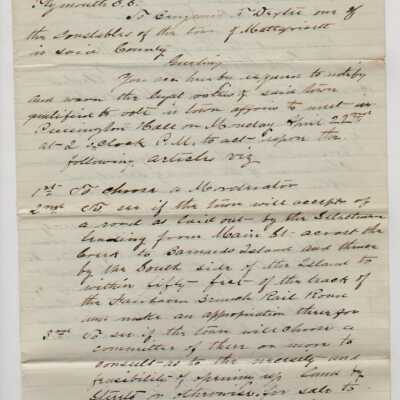 Plymouth S.S.
To Benjamin F Dexter one of
the Constables of the town of Mattapoisett
in said County
Greeting
You are hereby required to notify
and warn the legal voters of said town
qualified to vote in town affairs to meet in
Purrington Hall on Monday April 22nd
at 2 o'clock P.M. to act upon the
following articles viz
1st To choose a Moderator
2nd To see if the town will accept of
a road as laid out by the Selectmen
leading from Main St across the
Creek to Island and thence
by the South side of the Island to
within fifty feet of the track of
the Fairhaven Branch Rail Road
and make an appropriation therefor
3rd To see if the town will choose a
committee of three or more to
consult as to the necessity and
feasibility of opening up land by
Streets or otherwise for sale to